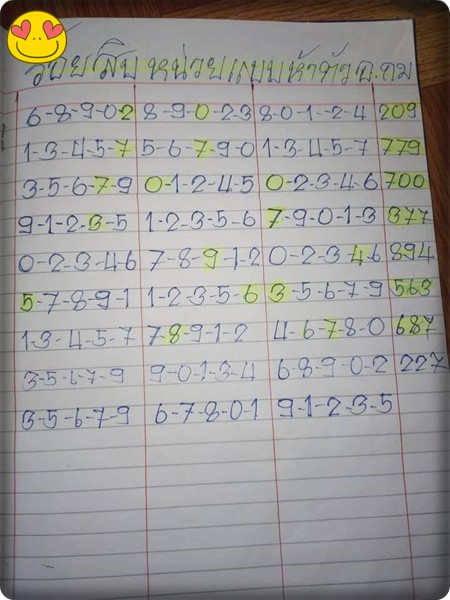 ร้อยสิบ หน่วยแบบห้าตัว อ.ถม
6-8-9-0-2 8-9-0-2-3 8-0-1-2-4 209
1-3-4-5-7 5-6-7-9-0 1-3-4-5-7 779
3-5-6-7-9 0-1-2-4-5 0-2-3-4-6 700
9-1-2-3-5 1-2-3-5-6 7-9-0-1-3 377
0-2-3-4-6 7-8-9-1-2 0-2-3-4-6 894
5-7-8-9-1 1-2-3-5-6 3-5-6-7-9 563
1-3-4-5-7 7-8-9-1-2 4-6-7-8-0 687
3-5-6-7-9 9-0-1-3-4 6-8-9-0-2 227
3-5-6-7-9 6-7-8-0-1 9-1-2-3-5